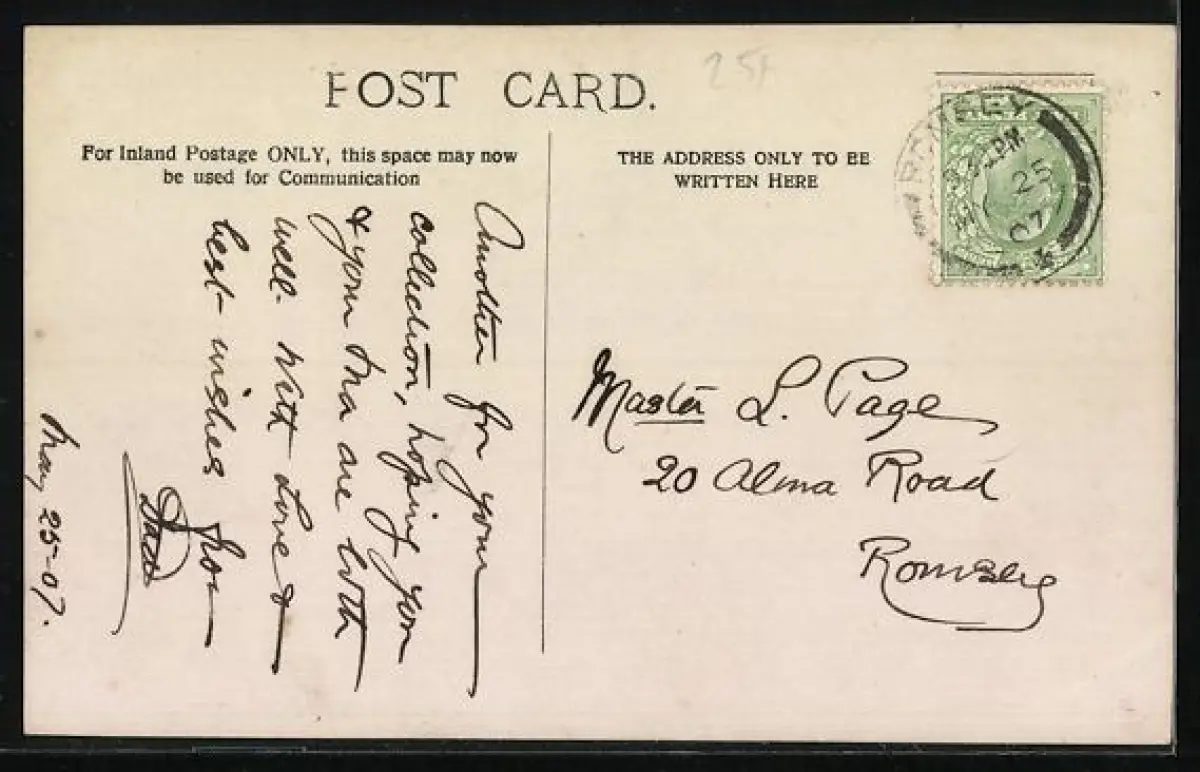 25
POST CARD.
For Inland Postage ONLY, this space may now
be used for Communication
THE ADDRESS ONLY TO BE
WRITTEN HERE
ROMSEY
PM
25
07
Another for your
collection, hoping you
& your Ma are both
well. With love &
best wishes from
Dad
May 25-07.
Master L. Page
20 Alma Road
Romsey